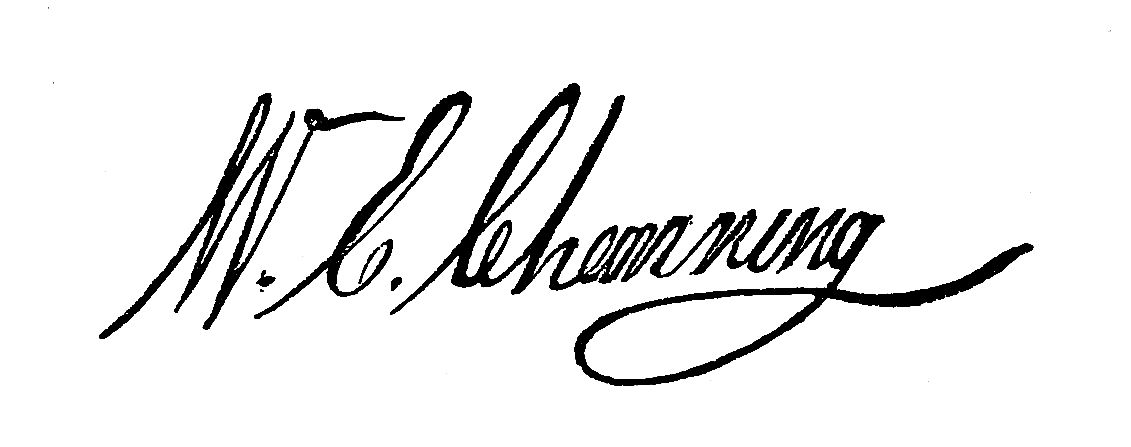 W. E. Channing